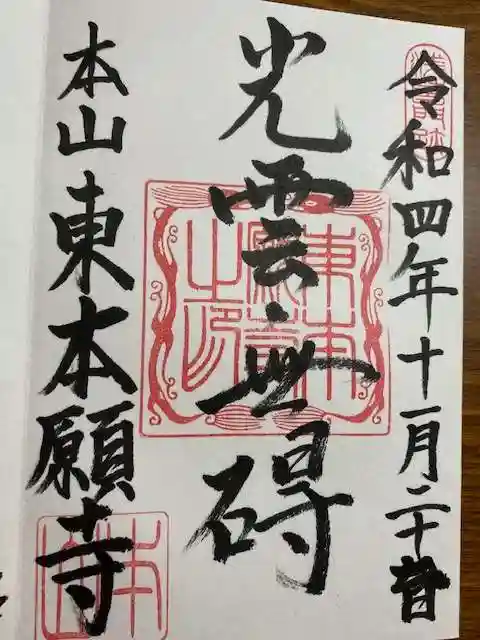 令和四年十一月二十八日
光雲無碍
本山東本願寺
東本願寺之印
本山